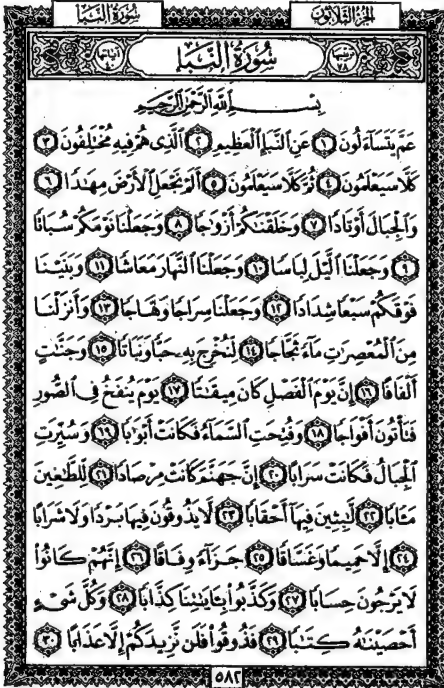 الجزء الثلاثون سورة النبأ
ترتيبها ٧٨ سُورَةُ النَّبَإِ آياتها ٤٠
بِسْمِ اللَّهِ الرَّحْمَٰنِ الرَّحِيمِ
عَمَّ يَتَسَآءَلُونَ ١ عَنِ ٱلنَّبَإِ ٱلْعَظِيمِ ٢ ٱلَّذِى هُمْ فِيهِ مُخْتَلِفُونَ ٣
كَلَّا سَيَعْلَمُونَ ٤ ثُمَّ كَلَّا سَيَعْلَمُونَ ٥ أَلَمْ نَجْعَلِ ٱلْأَرْضَ مِهَٰدًا ٦
وَٱلْجِبَالَ أَوْتَادًا ٧ وَخَلَقْنَٰكُمْ أَزْوَٰجًا ٨ وَجَعَلْنَا نَوْمَكُمْ سُبَاتًا
٩ وَجَعَلْنَا ٱلَّيْلَ لِبَاسًا ١٠ وَجَعَلْنَا ٱلنَّهَارَ مَعَاشًا ١١ وَبَنَيْنَا
فَوْقَكُمْ سَبْعًا شِدَادًا ١٢ وَجَعَلْنَا سِرَاجًا وَهَّاجًا ١٣ وَأَنزَلْنَا
مِنَ ٱلْمُعْصِرَٰتِ مَآءً ثَجَّاجًا ١٤ لِّنُخْرِجَ بِهِۦ حَبًّا وَنَبَاتًا ١٥ وَجَنَّٰتٍ
أَلْفَافًا ١٦ إِنَّ يَوْمَ ٱلْفَصْلِ كَانَ مِيقَٰتًا ١٧ يَوْمَ يُنفَخُ فِى ٱلصُّورِ
فَتَأْتُونَ أَفْوَاجًا ١٨ وَفُتِحَتِ ٱلسَّمَآءُ فَكَانَتْ أَبْوَٰبًا ١٩ وَسُيِّرَتِ
ٱلْجِبَالُ فَكَانَتْ سَرَابًا ٢٠ إِنَّ جَهَنَّمَ كَانَتْ مِرْصَادًا ٢١ لِّلطَّٰغِينَ
مَـَٔابًا ٢٢ لَّٰبِثِينَ فِيهَآ أَحْقَابًا ٢٣ لَّا يَذُوقُونَ فِيهَا بَرْدًا وَلَا شَرَابًا
٢٤ إِلَّا حَمِيمًا وَغَسَّاقًا ٢٥ جَزَآءً وِفَاقًا ٢٦ إِنَّهُمْ كَانُوا۟
لَا يَرْجُونَ حِسَابًا ٢٧ وَكَذَّبُوا۟ بِـَٔايَٰتِنَا كِذَّابًا ٢٨ وَكُلَّ شَىْءٍ
أَحْصَيْنَٰهُ كِتَٰبًا ٢٩ فَذُوقُوا۟ فَلَن نَّزِيدَكُمْ إِلَّا عَذَابًا ٣٠
٥٨٢